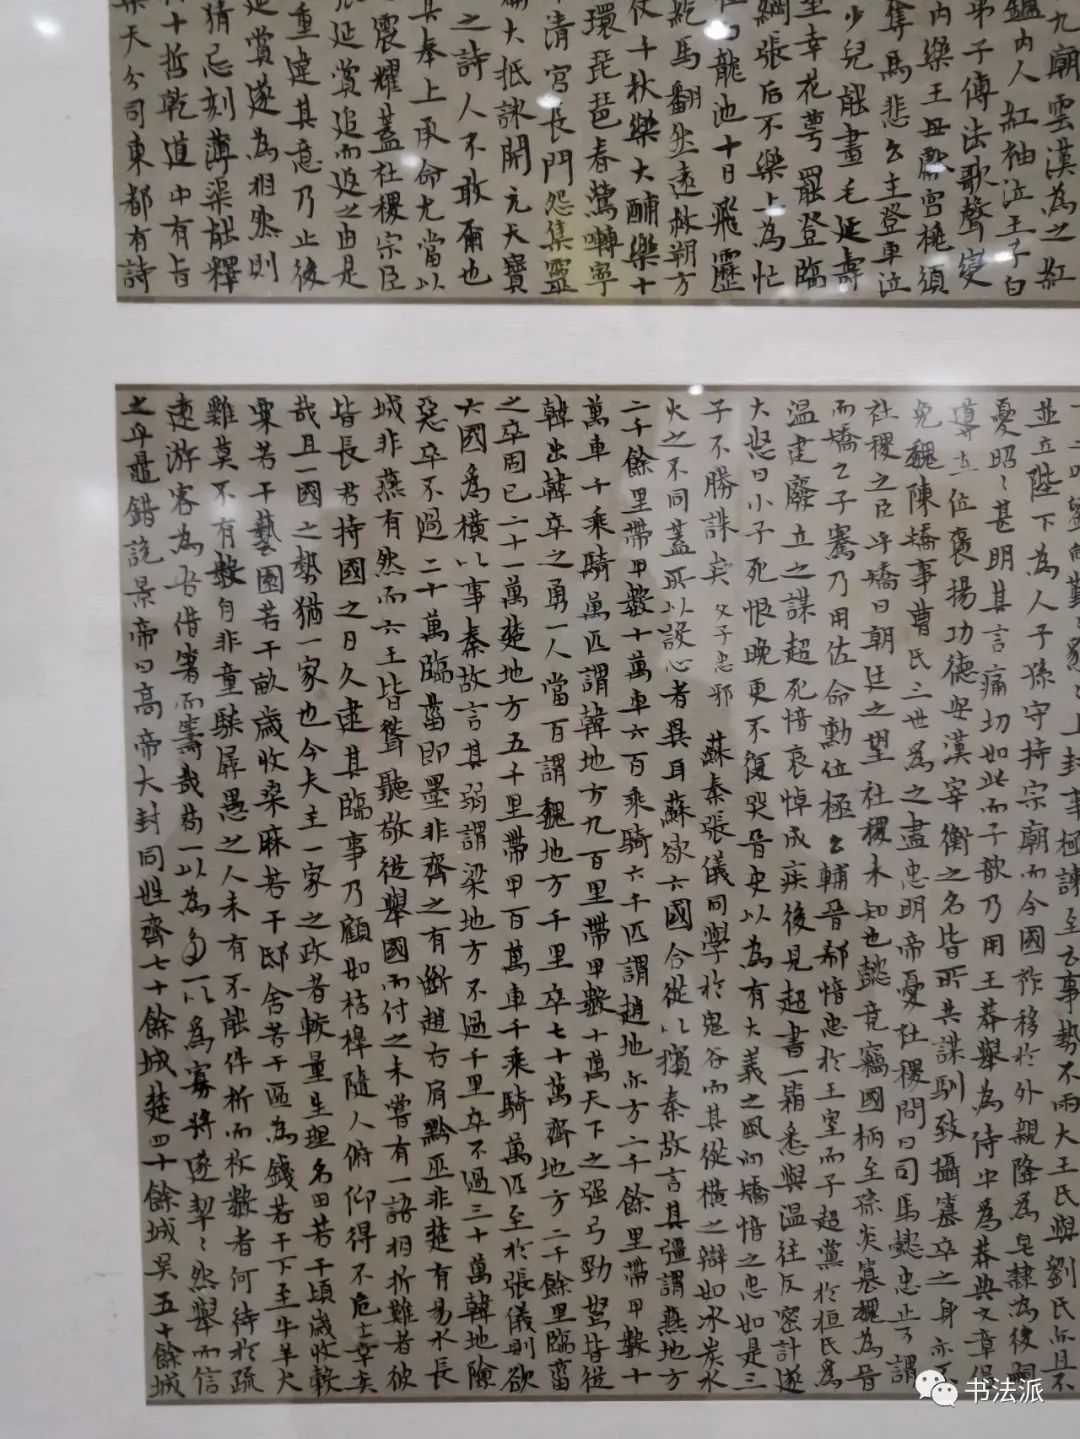 九廟雲漢為之紅
鑑內人紅袖泣王子白
弟子傳法歌聲變
內樂王母獻宮桃須
奪馬悲公主登車泣
少兒能畫毛延壽
里幸花萼罷登臨
綱張后不樂上為忙
龍池十日飛霹
乾馬翻然遠救朔方
使千秋樂大酺樂十
環琵琶春鶯囀寧
清宮長門怨集靈
大抵詠開元天寶
之詩人不敢爾也
其奉上承命尤當以
震耀蓋社稷宗臣
延賞追而返之由是
重違其意乃止後
延賞遂為相然則
猜忌刻薄渠能釋
十哲乾道中有旨
樂天分司東都有詩
上封事極諫至云事勢不兩大王氏與劉氏亦且不
並立陛下為人子孫守持宗廟而令國祚移於外親降為皂隸為後嗣
憂昭昭甚明其言痛切如此而子歆乃用王莽舉為侍中為莽典文章倡
導在位褒揚功德安漢宰衡之名皆所共謀馴致攝簒卒之身亦不
免魏陳矯事曹氏三世為之盡忠明帝憂社稷問曰司馬懿忠正可謂
社稷之臣乎矯曰朝廷之望社稷未知也懿竟竊國柄至孫炎簒魏為晉
而矯之子騫乃用佐命勳位極公輔晉郗愔忠於王室而子超黨於桓氏為
溫建廢立之謀超死愔哀悼成疾後見超書一箱悉與溫往反密計遂
大怒曰小子死恨晚更不復哭晉史以為有大義之風向矯愔之忠如是三
子不勝誅矣 父子忠邪 蘇秦張儀同學於鬼谷而其從橫之辯如冰炭水
火之不同蓋所以設心者異耳蘇欲六國合從以擯秦故言其彊謂燕地方
二千餘里帶甲數十萬車六百乘騎六千匹謂趙地亦方二千餘里帶甲數十
萬車千乘騎萬匹謂韓地方九百里帶甲數十萬天下之强弓勁弩皆從
韓出韓卒之勇一人當百謂魏地方千里卒七十萬齊地方二千餘里臨菑
之卒固已二十一萬楚地方五千里帶甲百萬車千乘騎萬匹至於張儀則欲
六國為橫以事秦故言其弱謂梁地方不過千里卒不過三十萬韓地險
惡卒不過二十萬臨菑即墨非齊之有斷趙右肩黔巫非楚有易水長
城非燕有然而六王皆聳聽敬從舉國而付之未嘗有一語相折難者彼
皆長君持國之日久逮其臨事乃顧如桔槔隨人俯仰得不危亡幸矣
哉且一國之勢猶一家也今夫主一家之政者較量生理名田若干頃歲收穀
粟若干藝園若干畝歲收桑麻若干邸舍若干區為錢若干下至牛羊犬
雞莫不有數自非童騃孱愚之人未有不能件析而枚數者何待於疏
遠游客為吾借箸而籌哉苟一以為多一以為寡將遂挈挈然舉而信
之乎鼂錯說景帝曰高帝大封同姓齊七十餘城楚四十餘城吳五十餘城
書法派